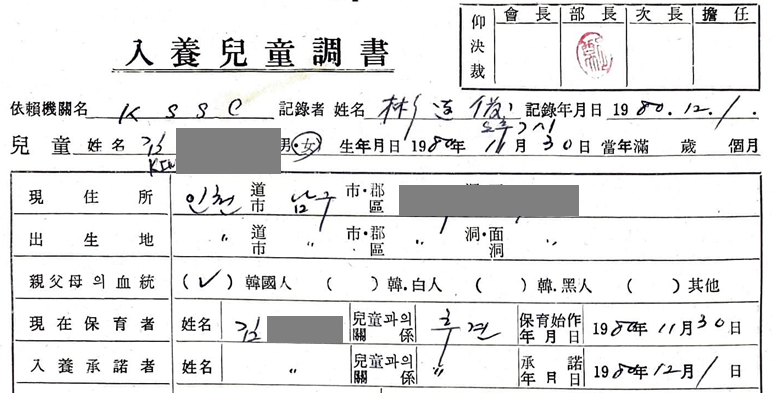 入養兒童調書
仰決裁 會長 部長 次長 擔任
依賴機關名 K S S C 記錄者 姓名 記錄年月日 1980.12.1.
오후 7시
兒童 姓名 김 男·女 生年月日 1980年 11月 30日 當年滿 歲 個月
KIM
現住所 인천 道市 남구 市·郡區 洞·面
出生地 〃 道市 〃 市·郡區 〃 洞·面洞 〃
親父母의血統 (✓)韓國人 ( )韓.白人 ( )韓.黑人 ( )其他
現在保育者 姓名 김 兒童과의關係 후견 保育始作年月日 1980年11月30日
入養承諾者 姓名 〃 兒童과의關係 〃 承諾年月日 1980年12月1日